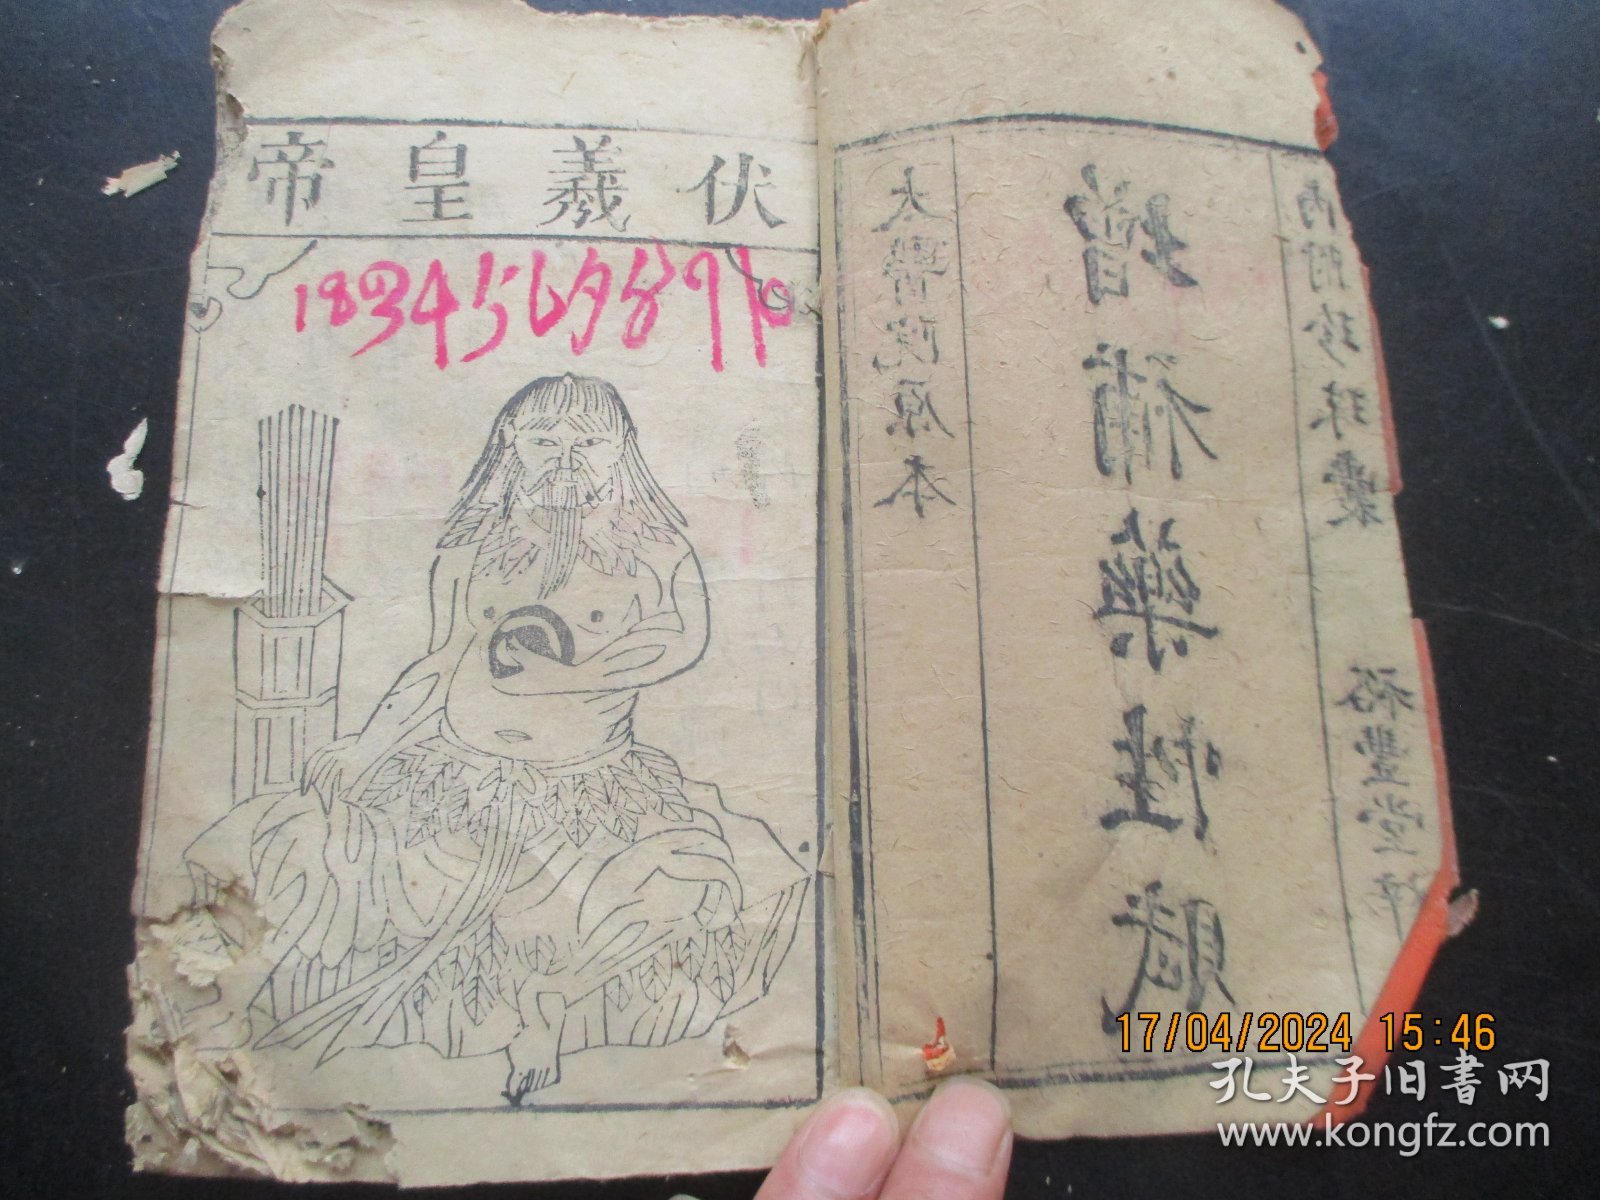 伏羲皇帝
太醫院原本
增補藥性賦
內附珍珠囊
裕豐堂梓
17/04/2024 15:46
孔夫子旧书网
www.kongfz.com